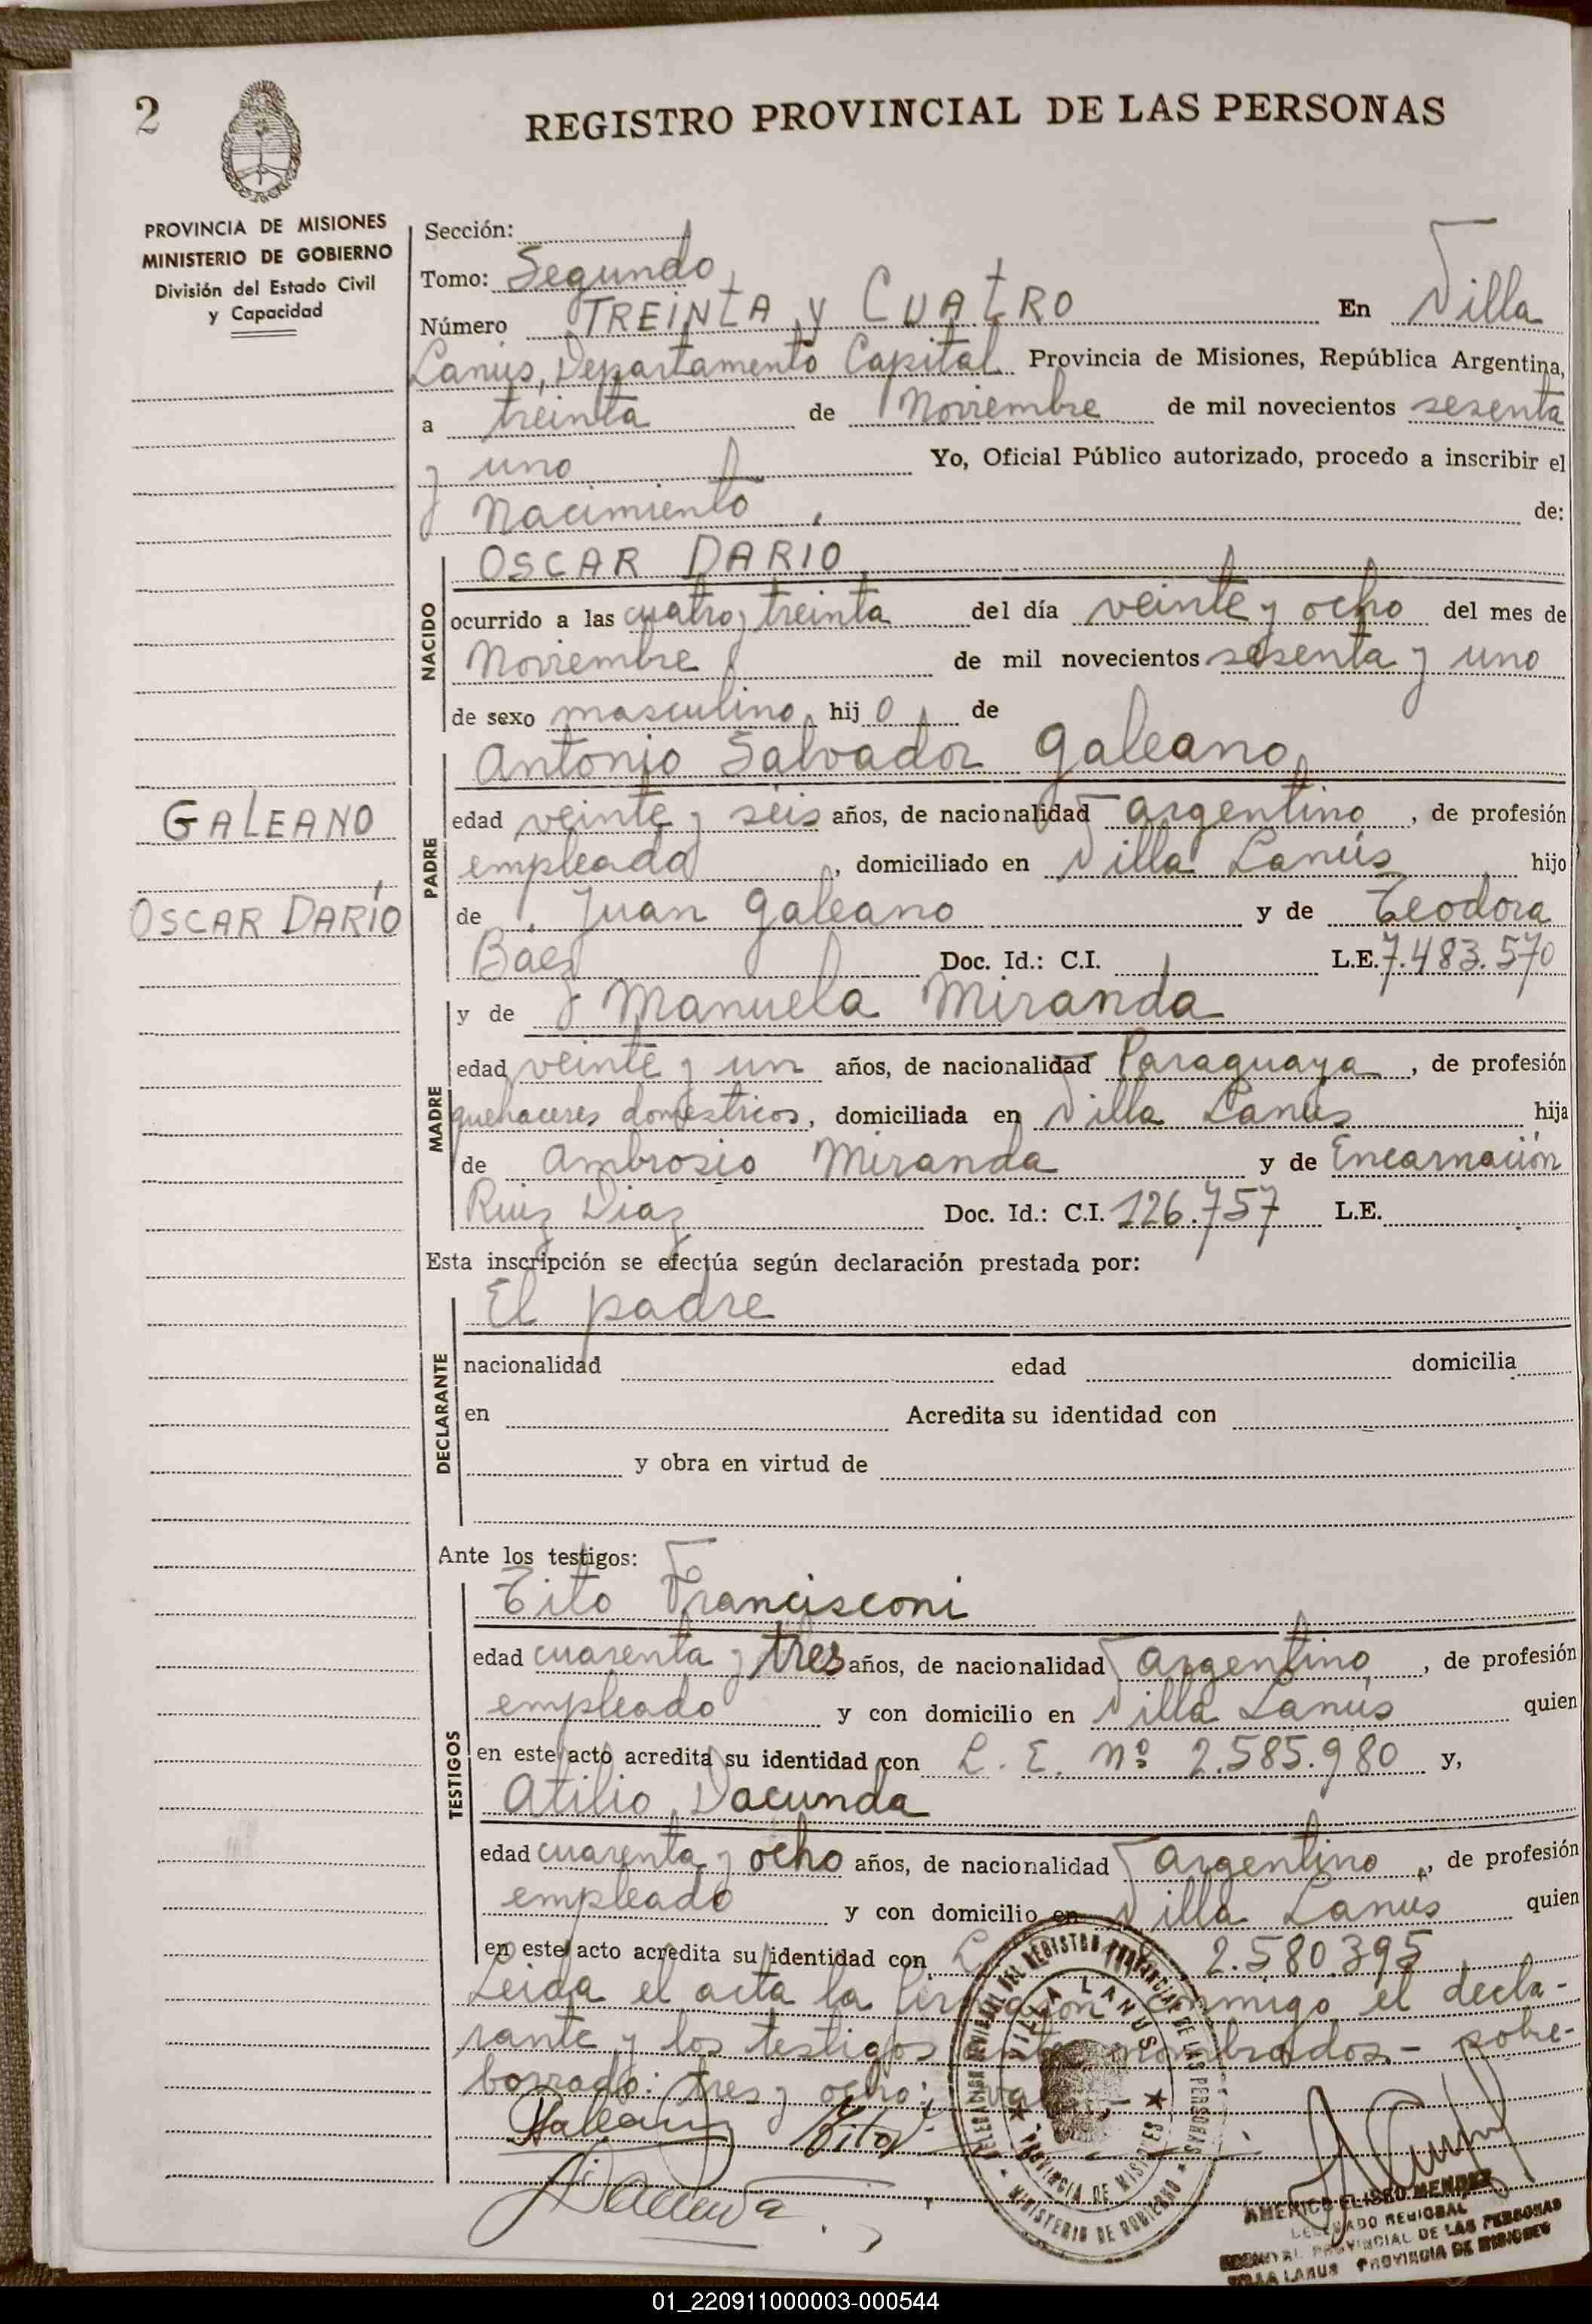 2
REGISTRO PROVINCIAL DE LAS PERSONAS
PROVINCIA DE MISIONES
MINISTERIO DE GOBIERNO
División del Estado Civil
y Capacidad
Sección:
Tomo: Segundo
Número TREINTA y CUATRO En Villa
Lanús, Departamento Capital Provincia de Misiones, República Argentina,
a treinta de Noviembre de mil novecientos sesenta
y uno Yo, Oficial Público autorizado, procedo a inscribir el
Nacimiento de:
NACIDO
OSCAR DARIO
ocurrido a las cuatro y treinta del día veinte y ocho del mes de
Noviembre de mil novecientos sesenta y uno
de sexo masculino hijo de
Antonio Salvador Galeano
GALEANO
OSCAR DARÍO
PADRE
edad veinte y seis años, de nacionalidad argentino, de profesión
empleado, domiciliado en Villa Lanús hijo
de Juan Galeano y de Teodora
Báez Doc. Id.: C.I. L.E. 7.483.570
y de Manuela Miranda
MADRE
edad veinte y un años, de nacionalidad Paraguaya, de profesión
quehaceres domésticos, domiciliada en Villa Lanús hija
de Ambrosio Miranda y de Encarnación
Ruiz Diaz Doc. Id.: C.I. 126.757 L.E.
Esta inscripción se efectúa según declaración prestada por:
El padre
DECLARANTE
nacionalidad edad domicilia
en Acredita su identidad con
y obra en virtud de
Ante los testigos:
Tito Francisconi
TESTIGOS
edad cuarenta y tres años, de nacionalidad argentino, de profesión
empleado y con domicilio en Villa Lanús quien
en este acto acredita su identidad con L. E. Nº 2.585.980 y,
Atilio Dacunda
edad cuarenta y ocho años, de nacionalidad argentino, de profesión
empleado y con domicilio en Villa Lanus quien
en este acto acredita su identidad con L 2.580.395
Leida el acta la firmaron conmigo el decla-
rante y los testigos ante nombrados.- sobre-
borrado: tres y ocho: vale
Galeano Tito
Dacunda
DELEGACION REGIONAL DEL REGISTRO PROVINCIAL DE LAS PERSONAS
VILLA LANUS
PROVINCIA DE MISIONES
MINISTERIO DE GOBIERNO
AMERICO ELISEO MENDEZ
DELEGADO REGIONAL
REGISTRO PROVINCIAL DE LAS PERSONAS
VILLA LANUS PROVINCIA DE MISIONES
01_220911000003-000544